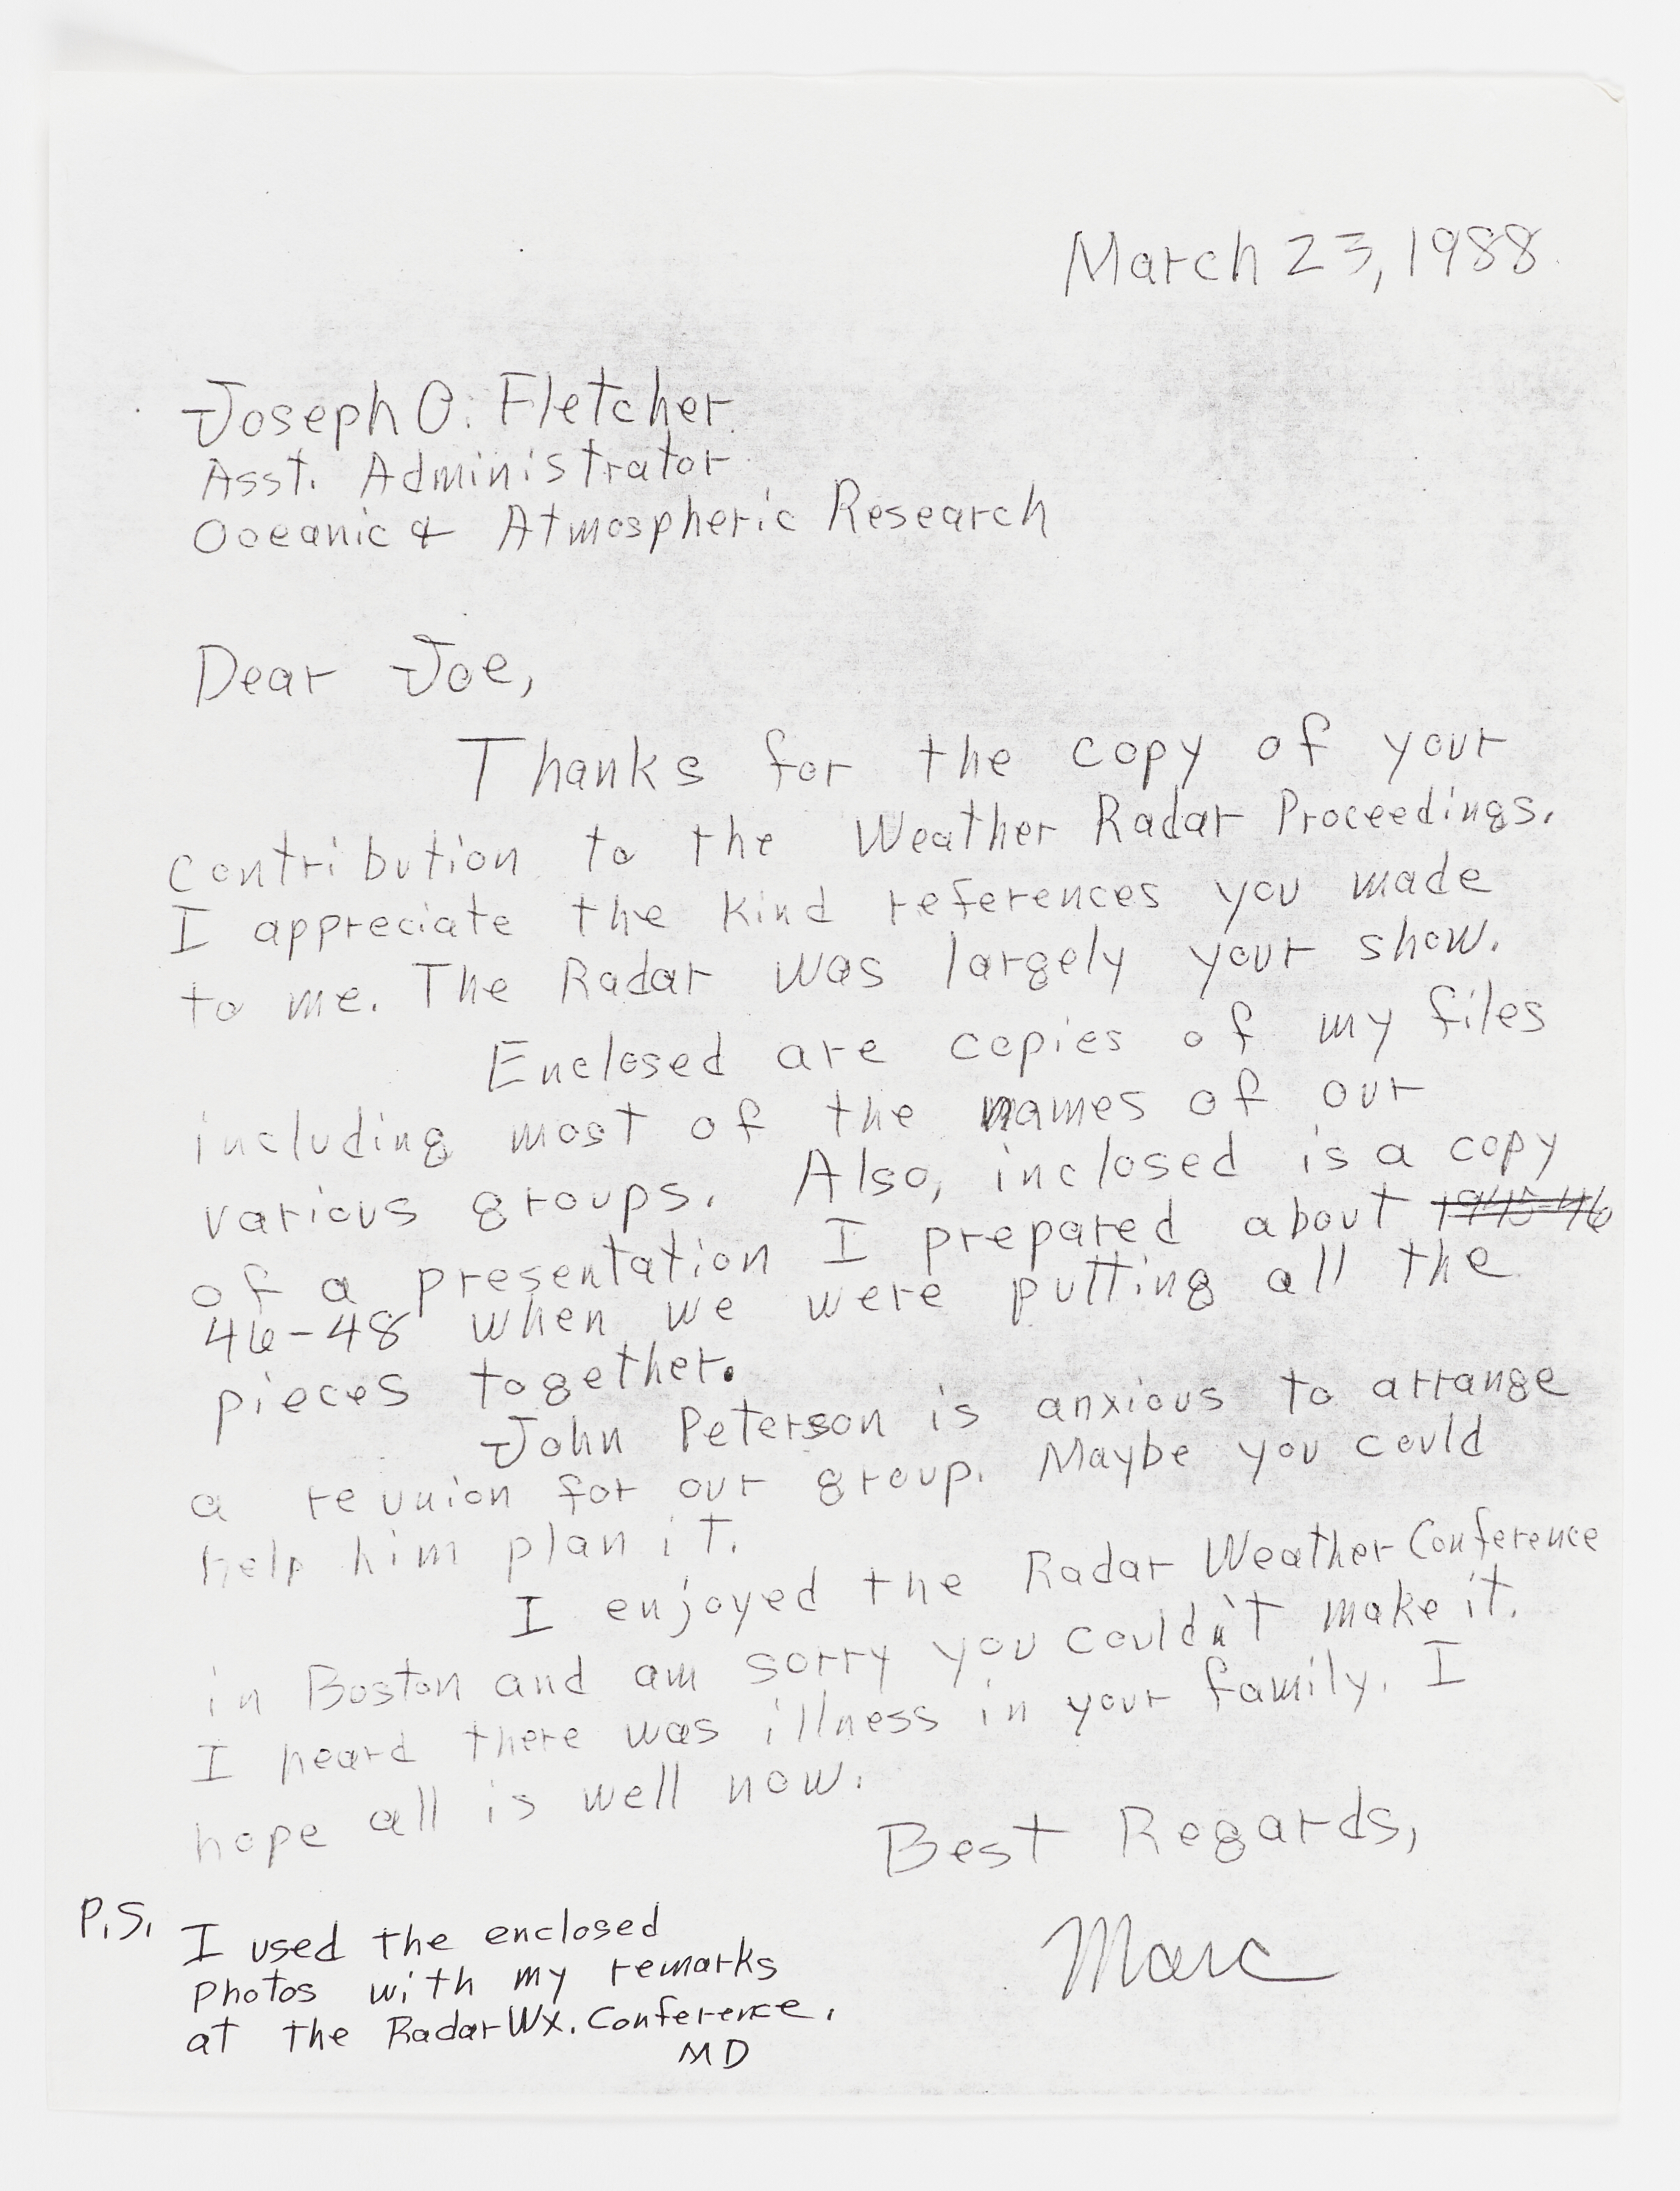 March 23, 1988
Joseph O. Fletcher
Asst. Administrator
Oceanic & Atmospheric Research
Dear Joe,
Thanks for the copy of your
contribution to the Weather Radar Proceedings.
I appreciate the kind references you made
to me. The Radar was largely your show.
Enclosed are copies of my files
including most of the names of our
various groups. Also, inclosed is a copy
of a presentation I prepared about 1945-46
46-48 when we were putting all the
pieces together.
John Peterson is anxious to arrange
a reunion for our group. Maybe you could
help him plan it.
I enjoyed the Radar Weather Conference
in Boston and am sorry you couldn't make it.
I heard there was illness in your family. I
hope all is well now.
Best Regards,
Marc
P.S. I used the enclosed
photos with my remarks
at the Radar Wx. Conference.
MD